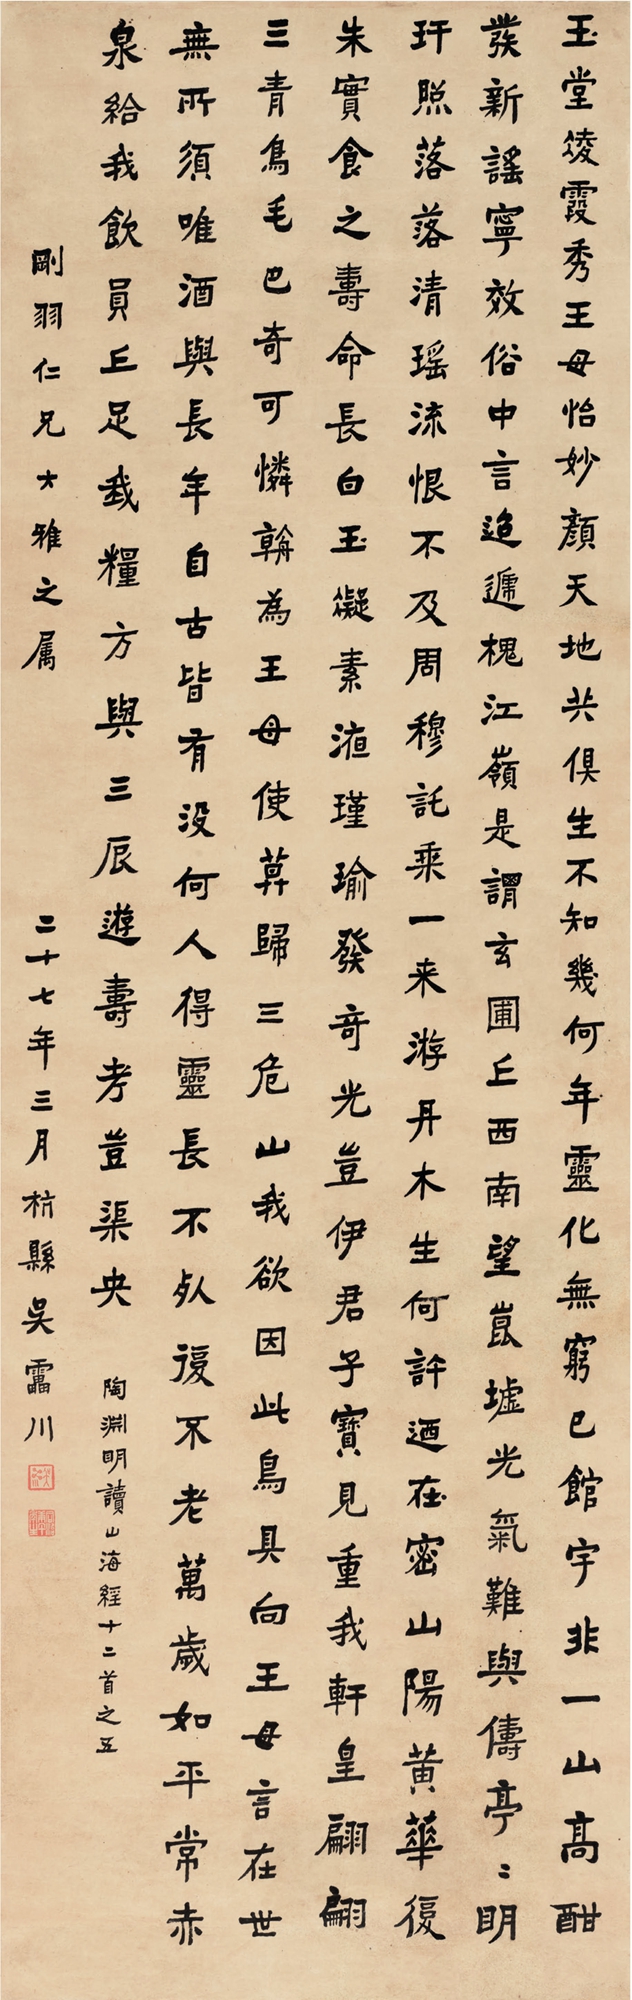 玉堂凌霞秀王母怡妙顏天地共俱生不知幾何年靈化無窮已館宇非一山高酣
發新謠寧效俗中言迢遞槐江嶺是謂玄圃丘西南望崑墟光氣難與儔亭〻明
玕照落落清瑤流恨不及周穆託乘一来游丹木生何許迺在密山陽黃華復
朱實食之壽命長白玉凝素液瑾瑜發奇光豈伊君子寶見重我軒皇翩翩
三青鳥毛色奇可憐朝為王母使暮歸三危山我欲因此鳥具向王母言在世
無所須唯酒與長年自古皆有沒何人得靈長不死復不老萬歲如平常赤
泉給我飲員丘足我糧方與三辰遊壽考豈渠央
陶淵明讀山海經十二首之五
剛羽仁兄大雅之属
二十七年三月杭縣吳靁川